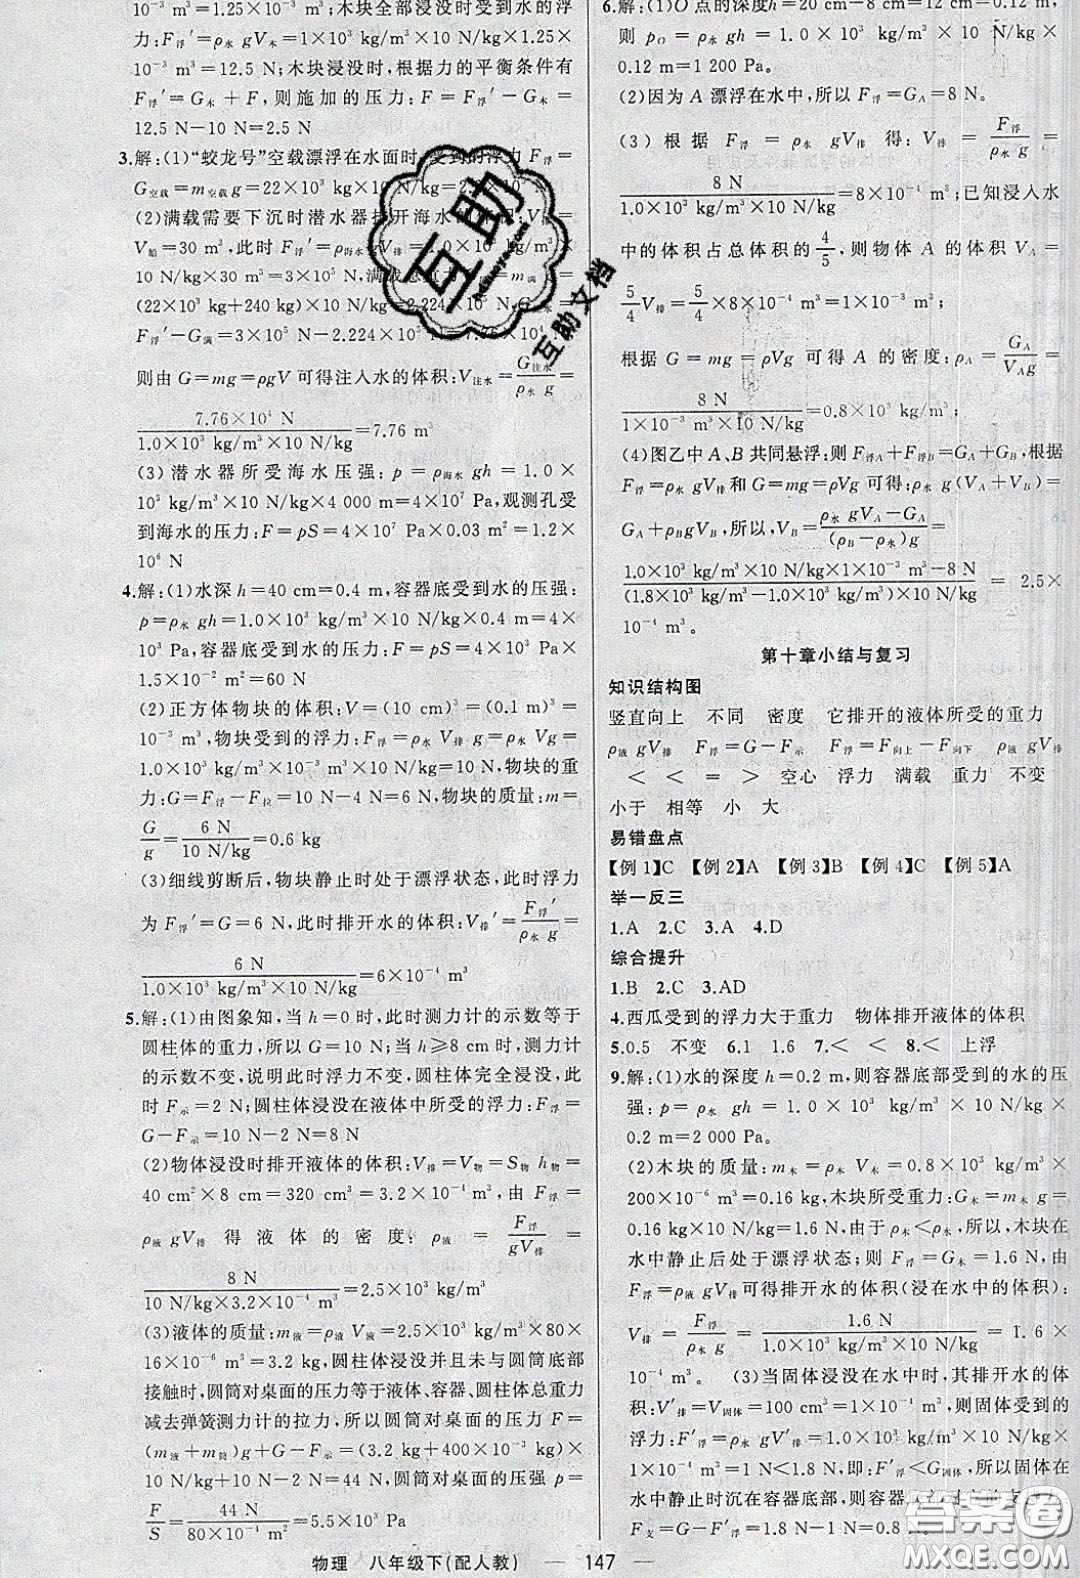 1.25×10⁻³ m³;木块全部浸没时受到水的浮
力:F浮=ρ水 gV木=1×10³ kg/m³×1.25×
10⁻³ m³=12.5 N;木块浸没时,根据力的平衡条件有
F浮′=G木+F,则施加的压力:F=F浮′-G木=
12.5 N-10 N=2.5 N
3.解:(1)“蛟龙号”空载漂浮在水面时,受到的浮力 F浮=
G空载=m空载 g=22×10³ kg×10 N/kg=2.2×10⁵ N
(2)满载需要下沉时潜水器排开海水的体积:V排=
V船=30 m³,此时 F浮′=ρ海水 gV排=1.0×10³
10 N/kg×30 m³=3×10⁵ N;满载总重:G满=m满 g=
(22×10³ kg+240 kg)×10 N/kg=2.224×10⁵ N,G注水=
F浮′-G满=3×10⁵ N-2.224×10⁵ N=7.76×10⁴ N
则由 G=mg=ρgV 可得注入水的体积:V注水=G注水/ρ水 g=
7.76×10⁴ N/1.0×10³ kg/m³×10 N/kg=7.76 m³
(3)潜水器所受海水压强:p=ρ海水 gh=1.0×
10³ kg/m³×10 N/kg×4 000 m=4×10⁷ Pa,观测孔受
到海水的压力:F=pS=4×10⁷ Pa×0.03 m²=1.2×
10⁶ N
4.解:(1)水深 h=40 cm=0.4 m,容器底受到水的压强:
p=ρ水 gh=1.0×10³ kg/m³×10 N/kg×0.4 m=4×
10³ Pa,容器底受到水的压力:F=pS=4×10³ Pa×
1.5×10⁻² m²=60 N
(2)正方体物块的体积:V=(10 cm)³=(0.1 m)³=
10⁻³ m³,物块受到的浮力:F浮=ρ水 V排 g=ρ水 Vg=
1.0×10³ kg/m³×10⁻³ m³×10 N/kg=10 N,物块的重
力:G=F浮-F拉=10 N-4 N=6 N,物块的质量:m=
G/g=6 N/10 N/kg=0.6 kg
(3)细线剪断后,物块静止时处于漂浮状态,此时浮力
为 F浮′=G=6 N,此时排开水的体积:V排′=F浮′/ρ水 g=
6 N/1.0×10³ kg/m³×10 N/kg=6×10⁻⁴ m³
5.解:(1)由图象知,当 h=0 时,此时测力计的示数等于
圆柱体的重力,所以 G=10 N;当 h≥8 cm 时,测力计
的示数不变,说明此时浮力不变,圆柱体完全浸没,此
时 F示=2 N;圆柱体浸没在液体中所受的浮力:F浮=
G-F示=10 N-2 N=8 N
(2)物体浸没时排开液体的体积:V排=V物=S物 h物=
40 cm²×8 cm=320 cm³=3.2×10⁻⁴ m³,由 F浮=
ρ液 gV排 得液体的密度:ρ液=F浮/gV排=
8 N/10 N/kg×3.2×10⁻⁴ m³=2.5×10³ kg/m³
(3)液体的质量:m液=ρ液 V液=2.5×10³ kg/m³×80×
16×10⁻⁶ m³=3.2 kg,圆柱体浸没并且未与圆筒底部
接触时,圆筒对桌面的压力等于液体、容器、圆柱体总重力
减去弹簧测力计的拉力,所以圆筒对桌面的压力 F=
(m液+m筒)g+G-F示=(3.2 kg+400×10⁻³ kg)×
10 N/kg+10 N-2 N=44 N,圆筒对桌面的压强 p=
F/S=44 N/80×10⁻⁴ m²=5.5×10³ Pa
6.解:(1)O 点的深度 h=20 cm-8 cm=12 cm=0.12 m,
则 pO=ρ水 gh=1.0×10³ kg/m³×10 N/kg×
0.12 m=1 200 Pa。
(2)因为 A 漂浮在水中,所以 F浮=GA=8 N。
(3)根据 F浮=ρ水 gV排 得:V排=F浮/ρ水 g=
8 N/1.0×10³ kg/m³×10 N/kg=8×10⁻⁴ m³;已知浸入水
中的体积占总体积的4/5,则物体 A 的体积 VA=
5/4V排=5/4×8×10⁻⁴ m³=1×10⁻³ m³
根据 G=mg=ρVg 可得 A 的密度:ρA=GA/VAg=
8 N/1×10⁻³ m³×10 N/kg=0.8×10³ kg/m³;
(4)图乙中 A、B 共同悬浮:则 F浮A+F浮B=GA+GB,根据
F浮=ρ水 gV排 和 G=mg=ρVg 可得:ρ水 g(VA+VB)=
GA+ρBgVB,所以,VB=ρ水 gVA-GA/(ρB-ρ水)g=
1.0×10³ kg/m³×10 N/kg×1×10⁻³ m³-8 N/(1.8×10³ kg/m³-1.0×10³ kg/m³)×10 N/kg=2.5×
10⁻⁴ m³。
第十章小结与复习
知识结构图
竖直向上 不同 密度 它排开的液体所受的重力
ρ液 gV排 F浮=G-F示 F浮=F向上-F向下 ρ液 gV排
< < = > 空心 浮力 满载 重力 不变
小于 相等 小 大
易错盘点
【例1】C 【例2】A 【例3】B 【例4】C 【例5】A
举一反三
1.A 2.C 3.A 4.D
综合提升
1.B 2.C 3.AD
4.西瓜受到的浮力大于重力 物体排开液体的体积
5.0.5 不变 6.1 1.6 7.< < 8.< 上浮
9.解:(1)水的深度 h=0.2 m,则容器底部受到的水的压
强:p=ρ水 gh=1.0×10³ kg/m³×10 N/kg×
0.2 m=2 000 Pa。
(2)木块的质量:m木=ρ木 V木=0.8×10³ kg/m³×
200×10⁻⁶ m³=0.16 kg,木块所受重力:G木=m木 g=
0.16 kg×10 N/kg=1.6 N,由于ρ木<ρ水,所以,木块在
水中静止后处于漂浮状态;则 F浮=G木=1.6 N,由
F浮=ρ液 gV排可得排开水的体积(浸在水中的体积):
V排=F浮/ρ水 g=1.6 N/1.0×10³ kg/m³×10 N/kg=1.6×
10⁻⁴ m³。 (3)当固体浸没在水中时,其排开水的体积:
V′排=V固体=100 cm³=1×10⁻⁴ m³,则固体受到的
浮力:F′浮=ρ水 gV′排=1.0×10³ kg/m³×10 N/kg×
1×10⁻⁴ m³=1 N<1.8 N,即:F′浮<G固体,所以固体在
水中静止时沉在容器底部,则容器
F支=G固体-F′浮=1.8 N-1 N
物理 八年级下(配人教) — 147 —
互助
互助文档
答案圈
MXQE.COM